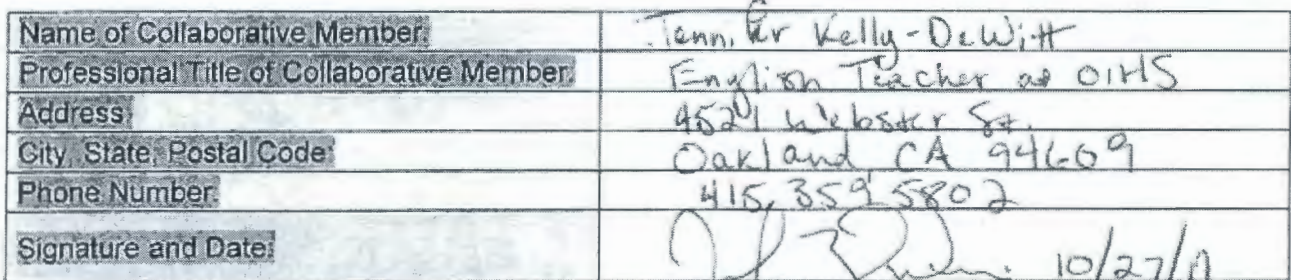 Name of Collaborative Member: Jennifer Kelly-DeWitt
Professional Title of Collaborative Member: English Teacher at OIHS
Address: 4521 Webster St.
City, State, Postal Code: Oakland CA 94609
Phone Number: 415.359 5802
Signature and Date: 10/27/11